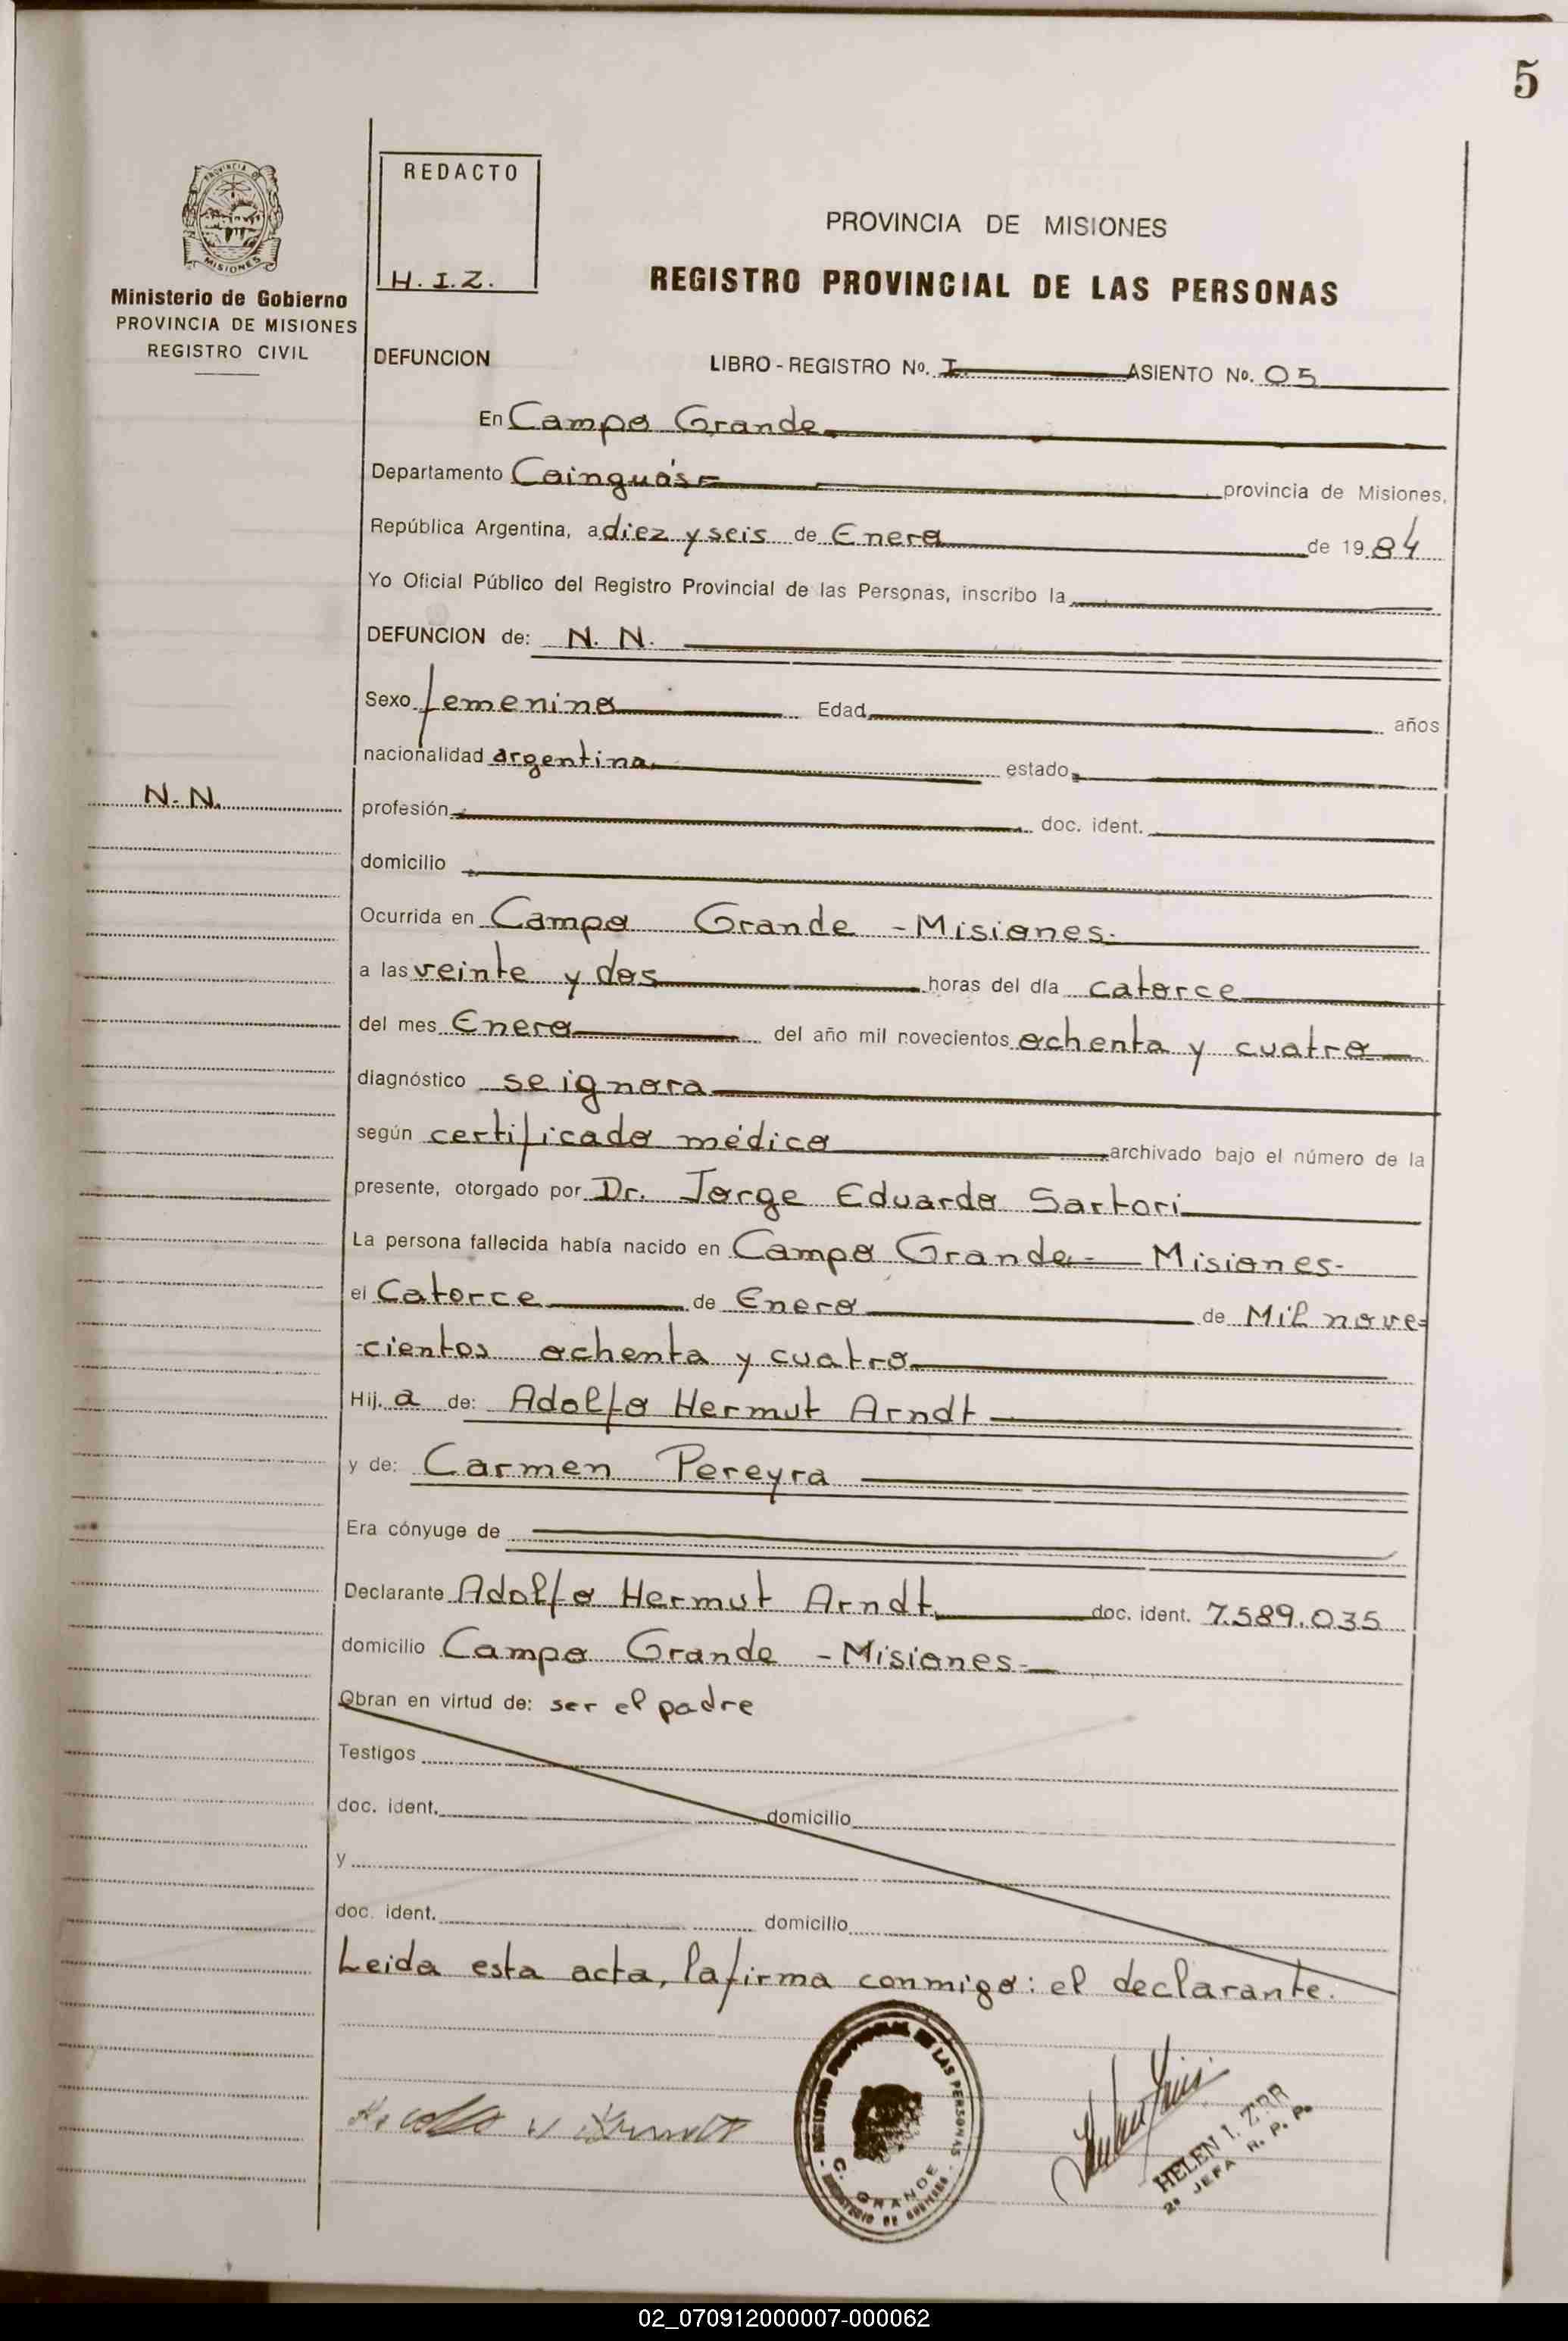 5
REDACTO
H. I. Z.
Ministerio de Gobierno
PROVINCIA DE MISIONES
REGISTRO CIVIL
PROVINCIA DE MISIONES
REGISTRO PROVINCIAL DE LAS PERSONAS
DEFUNCION LIBRO - REGISTRO No. I ASIENTO No. 05
En Campo Grande
Departamento Cainguás provincia de Misiones,
República Argentina, a diez y seis de Enero de 19 84
Yo Oficial Público del Registro Provincial de las Personas, inscribo la
DEFUNCION de: N. N.
Sexo femenino Edad años
nacionalidad argentina estado
N. N.
profesión doc. ident.
domicilio
Ocurrida en Campo Grande - Misiones.
a las veinte y dos horas del día catorce
del mes Enero del año mil novecientos ochenta y cuatro
diagnóstico se ignora
según certificado médico archivado bajo el número de la
presente, otorgado por Dr. Jorge Eduardo Sartori
La persona fallecida había nacido en Campo Grande - Misiones-
el Catorce de Enero de Mil nove=
-cientos ochenta y cuatro
Hij. a de: Adolfo Hermut Arndt
y de: Carmen Pereyra
Era cónyuge de
Declarante Adolfo Hermut Arndt doc. ident. 7.589.035
domicilio Campo Grande - Misiones-
Obran en virtud de: ser el padre
Testigos
doc. ident. domicilio
y
doc. ident. domicilio
Leida esta acta, la firma conmigo: el declarante.
REGISTRO PROVINCIAL DE LAS PERSONAS
C. GRANDE
MINISTERIO DE GOBIERNO
HELEN I. ZRR
2º JEFA R. P. P.
02_070912000007-000062